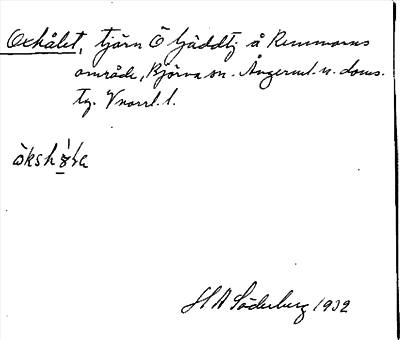 Oxhålet, tjärn Ö Gäddtj å Remmarns
område, Björna sn. Ångerml. n. doms.
tg. Vnorrl. l.
öksh
H A Söderberg 1932